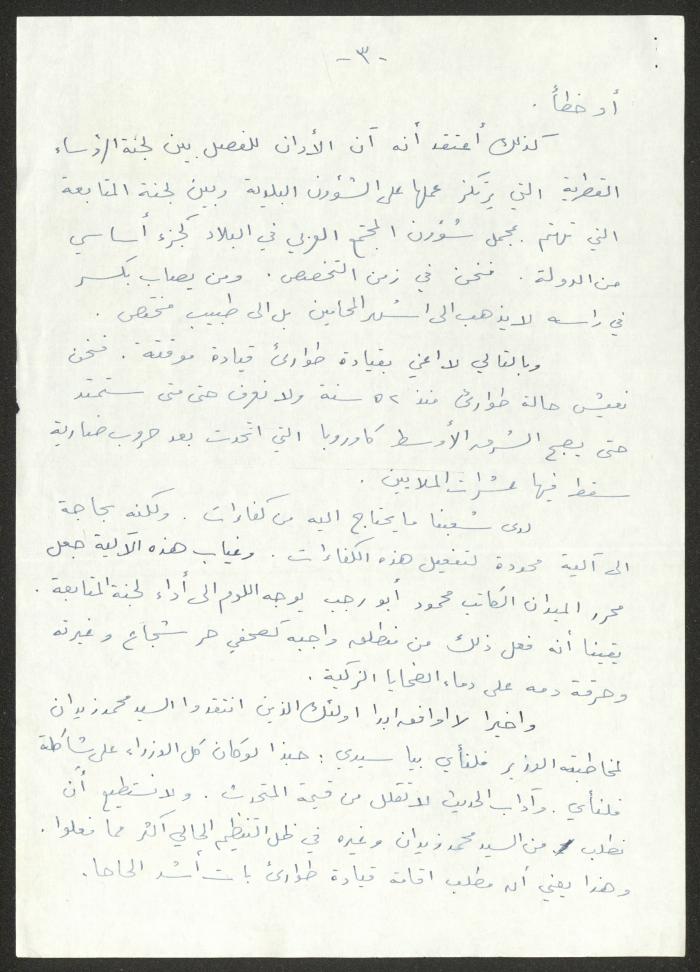 -٣-
أو خطأ .
كذلك أعتقد أنه آن الأوان للفصل بين لجنة الرؤساء
القطرية التي يرتكز عملها على الشؤون البلدية وبين لجنة المتابعة
التي تهتم بمجمل شؤون المجتمع العربي في البلاد كجزء أساسي
من الدولة . فنحن في زمن التخصص . ومن يصاب بكسر
في راسه لا يذهب الى اشهر المحامين بل الى طبيب مختص .
وبالتالي لا اعني بقيادة طوارئ قيادة موقتة . فنحن
نعيش حالة طوارئ منذ ٥٢ سنة ولا نعرف حتى متى ستمتد
حتى يصبح الشرق الأوسط كاوروبا التي اتحدت بعد حروب ضارية
سقط فيها عشرات الملايين .
لدى شعبنا ما يحتاج اليه من كفاءات . ولكنه بحاجة
الى آلية محددة لتفعيل هذه الكفاءات . وغياب هذه الآلية جعل
محرر الميدان الكاتب محمود أبو رجب يوجه اللوم الى أداء لجنة المتابعة .
يقينا أنه فعل ذلك من منطلق واجبه كصحفي حر شجاع وغيرته
وحرقة دمه على دماء الضحايا الزكية .
واخيرا لا اوافق ابدا اولئك الذين انتقدوا السيد محمد زيدان
لمخاطبته الوزير فلنأي بيا سيدي : حبذا لو كان كل الوزراء على شاكلة
فلنأي . وآداب الحديث لا تقلل من قيمة المتحدث . ولا نستطيع أن
نطلب من السيد محمد زيدان وغيره في ظل التنظيم الحالي أكثر مما فعلوا .
وهذا يعني أن مطلب اقامة قيادة طوارئ بات أشد الحاحا .